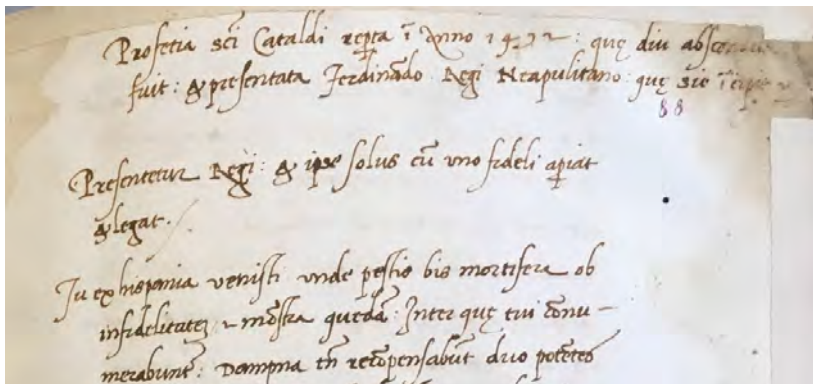 Profetia sc̄i Cataldi rep̱ta ī Anno 1492: quę diu abscondita
fuit: & presentata Ferdinādo Regi Neapulitano: quę sic īcipit
88
Presentetur Regi: & ipse solus cū uno fideli apiat
& legat.
Tu ex hispania venisti unde pestis bis mortifera ob
infidelitatez & mōstra quedā: Inter quę tui cōnu-
merabunt: Dampna tn̄ recōpensabūt duo potētes